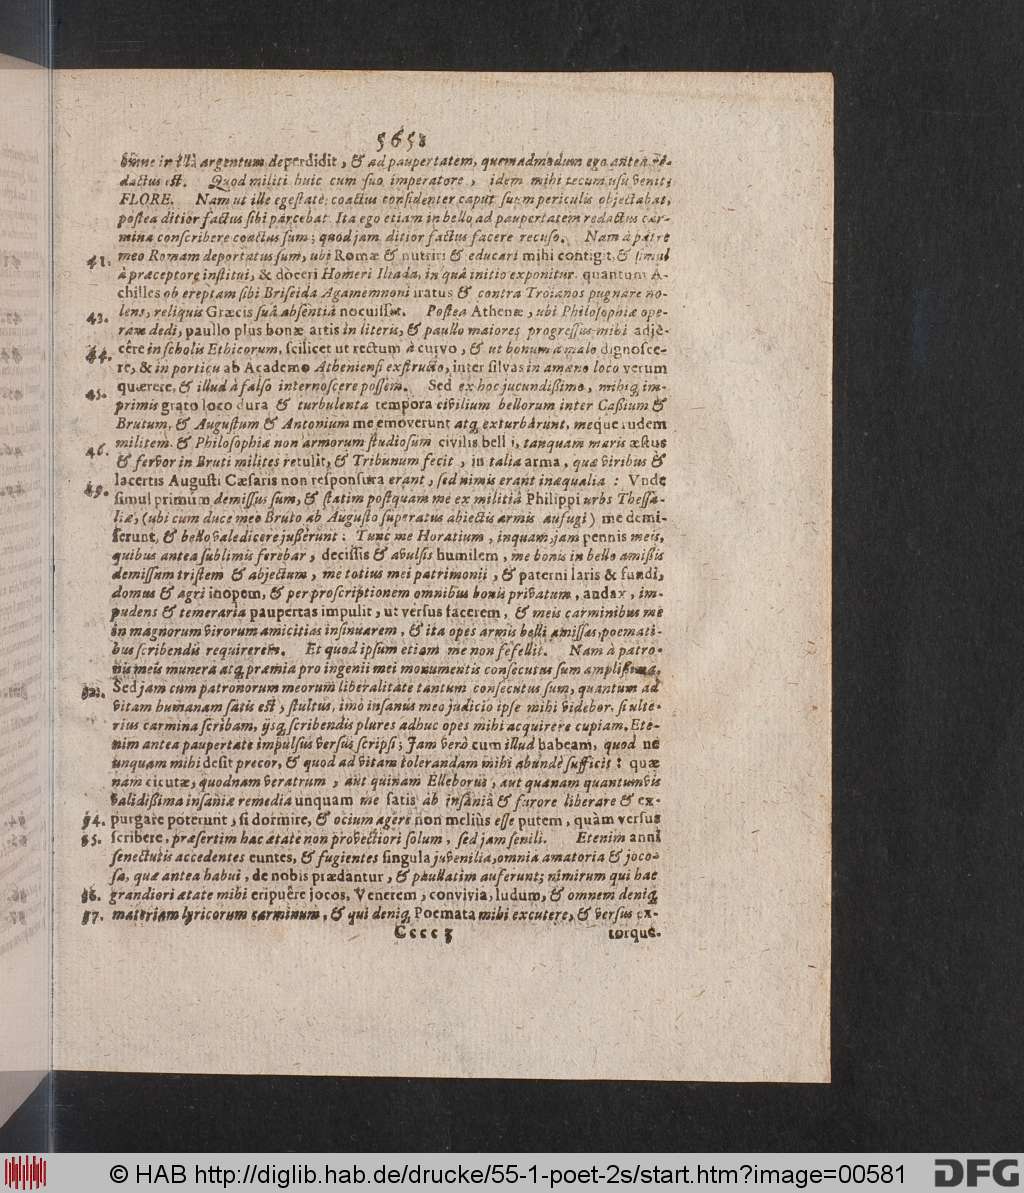 565
omne in illâ argentum deperdidit, & ad paupertatem, quemadmodum ego anteà re-
dactus est. Quod militi huic cum suo imperatore, idem mihi tecum usu venit,
FLORE. Nam ut ille egestate coactus confidenter caput suum periculis objectabat,
postea ditior factus sibi parcebat. Ita ego etiam in bello ad paupertatem redactus car-
mina conscribere coactus sum; quod jam ditior factus facere recuso. Nam à patre
41. meo Romam deportatus sum, ubi Romæ & nutriri & educari mihi contigit, & simul
à præceptore institui, & doceri Homeri Iliada, in quâ initio exponitur quantum A-
chilles ob ereptam sibi Briseida Agamemnoni iratus & contra Troianos pugnare no-
43. lens, reliquis Græcis suâ absentiâ nocuisset. Postea Athenæ, ubi Philosophiæ ope-
ram dedi, paullo plus bonæ artis in literis, & paullo maiores progressus mihi adjê-
44. cêre in scholis Ethicorum, scilicet ut rectum à curvo, & ut bonum à malo dignosce-
re, & in porticu ab Academo Atheniensi exstructo, inter silvas in amæno loco verum
45. quærere, & illud à falso internoscere possem. Sed ex hoc jucundissimo, mihiq; im-
primis grato loco dura & turbulenta tempora civilium bellorum inter Cassium &
Brutum, & Augustum & Antonium me emoverunt atq; exturbârunt, meque rudem
46. militem & Philosophiæ non armorum studiosum civilis belli, tanquam maris æstus
& fervor in Bruti milites retulit, & Tribunum fecit, in talia arma, quæ viribus &
49. lacertis Augusti Cæsaris non responsura erant, sed nimis erant inæqualia: Vnde
simul primùm demissus sum, & statim postquam me ex militiâ Philippi urbs Thessa-
liæ, (ubi cum duce meo Bruto ab Augusto superatus abiectis armis aufugi) me demi-
serunt, & bello valedicere jusserunt: Tunc me Horatium, inquam, jam pennis meis,
quibus antea sublimis ferebar, decissis & avulsis humilem, me bonis in bello amissis
demissum tristem & abjectum, me totius mei patrimonii, & paterni laris & fundi,
domus & agri inopem, & per proscriptionem omnibus bonis privatum, audax, im-
pudens & temeraria paupertas impulit, ut versus facerem, & meis carminibus me
in magnorum virorum amicitias insinuarem, & ita opes armis belli amissas, poemati-
bus scribendis requirerem. Et quod ipsum etiam me non fefellit. Nam à patro-
nis meis munera atq; præmia pro ingenii mei monumentis consecutus sum amplissima.
52. Sed jam cum patronorum meorum liberalitate tantum consecutus sum, quantum ad
vitam humanam satis est, stultus, imò insanus meo judicio ipse mihi videbor, si ulte-
rius carmina scribam, ijsq; scribendis plures adhuc opes mihi acquirere cupiam. Ete-
nim antea paupertate impulsus versus scripsi; Jam verò cum illud habeam, quod ne
unquam mihi desit precor, & quod ad vitam tolerandam mihi abundè sufficit: quæ
nam cicutæ, quodnam veratrum, aut quinam Elleborus, aut quænam quantumvis
validissima insaniæ remedia unquam me satis ab insaniâ & furore liberare & ex-
54. purgare poterunt, si dormire, & ocium agere non meliùs esse putem, quàm versus
55. scribere, præsertim hac ætate non provectiori solum, sed jam senili. Etenim anni
senectutis accedentes euntes, & fugientes singula juvenilia, omnia amatoria & joco-
sa, quæ antea habui, de nobis prædantur, & paullatim auferunt; nimirum qui hac
56. grandiori ætate mihi eripuêre jocos, Venerem, convivia, ludum, & omnem deniq;
57. materiam lyricorum carminum, & qui deniq; Poemata mihi excutere, & versus ex-
Cccc 3 torque.
© HAB http://diglib.hab.de/drucke/55-1-poet-2s/start.htm?image=00581
DFG